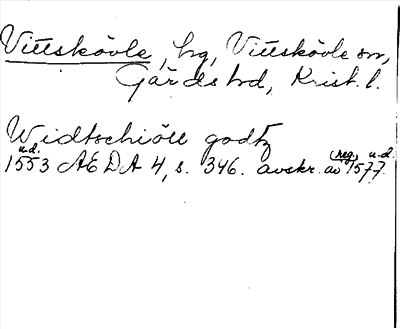 Vittskövle, hg, Vittskövle sn,
Gärds hd, Krist. l.
Widtschiöll godtz
u.d. (reg.) u.d.
1553 AEDA 4, s. 346. avskr. av 1577.